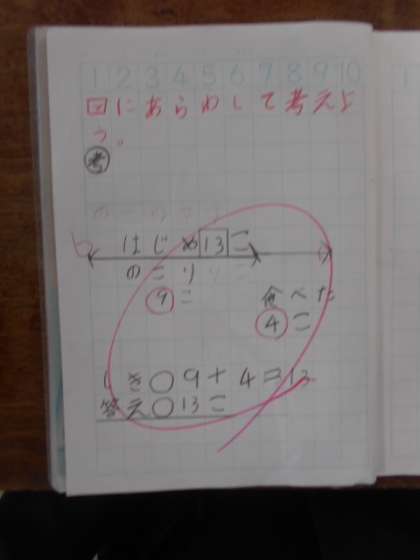 1 2 3 4 5 6 7 8 9 10
図にあらわして考えよ
う。
考
はじめ13こ
のこり
9こ
食べた
4こ
しき○9+4=13
答え○13こ